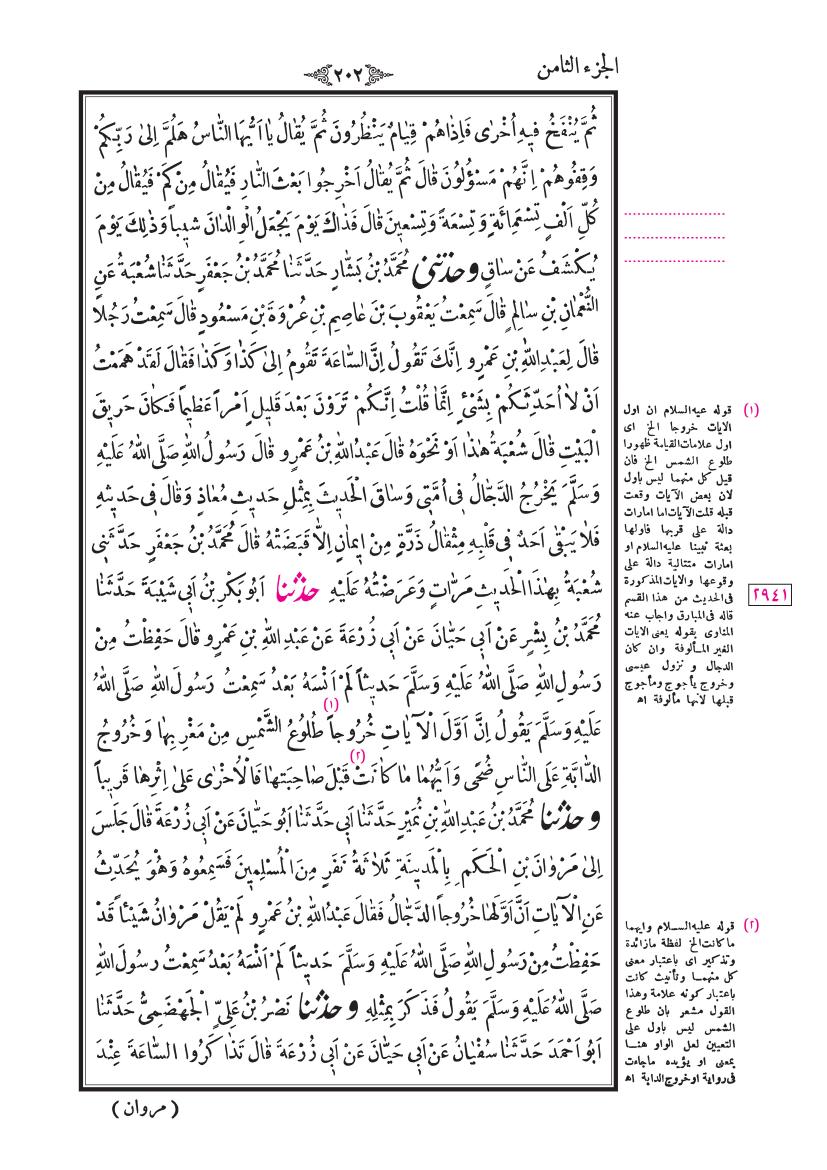 الجزء الثامن
٢٠٢
ثُمَّ يُنْفَخُ فيهِ اُخْرٰى فَاِذَاهُمْ قِيَامٌ يَنْظُرُونَ ثُمَّ يُقَالُ يَا اَيُّهَا النَّاسُ هَلُمَّ اِلىٰ رَبِّكُمْ
وَقِفُوهُمْ اِنَّهُمْ مَسْؤُلُونَ قَالَ ثُمَّ يُقَالُ اَخْرِجُوا بَعْثَ النَّارِ فَيُقَالُ مِنْ كَمْ فَيُقَالُ مِنْ
كُلِّ اَلْفٍ تِسْعَمِائَةٍ وَتِسْعَةً وَتِسْعينَ قَالَ فَذَاكَ يَوْمَ يَجْعَلُ الْوِلْدَانَ شيباً وَذٰلِكَ يَوْمَ
يُكْشَفُ عَنْ سَاقٍ وحَدَّثَنِى مُحَمَّدُ بْنُ بَشَّارٍ حَدَّثَنَا مُحَمَّدُ بْنُ جَعْفَرٍ حَدَّثَنَا شُعْبَةُ عَنِ
النُّعْمَانِ بْنِ سَالِمٍ قَالَ سَمِعْتُ يَعْقُوبَ بْنَ عَاصِمِ بْنِ عُرْوَةَ بْنِ مَسْعُودٍ قَالَ سَمِعْتُ رَجُلاً
قَالَ لِعَبْدِ اللّٰهِ بْنِ عَمْرٍو اِنَّكَ تَقُولُ اِنَّ السَّاعَةَ تَقُومُ اِلىٰ كَذَا وَكَذَا فَقَالَ لَقَدْ هَمَمْتُ
اَنْ لاٰ اُحَدِّثَكُمْ بِشَيْئٍ اِنَّمَا قُلْتُ اِنَّكُمْ تَرَوْنَ بَعْدَ قَليلٍ اَمْراً عَظيماً فَكَانَ حَريقَ
الْبَيْتِ قَالَ شُعْبَةُ هٰذَا اَوْ نَحْوَهُ قَالَ عَبْدُ اللّٰهِ بْنُ عَمْرٍو قَالَ رَسُولُ اللّٰهِ صَلَّى اللّٰهُ عَلَيْهِ
وَسَلَّمَ يَخْرُجُ الدَّجَّالُ فى اُمَّتى وَسَاقَ الْحَديثَ بِمِثْلِ حَديثِ مُعَاذٍ وَقَالَ فى حَديثِهِ
فَلاٰ يَبْقٰى اَحَدٌ فى قَلْبِهِ مِثْقَالُ ذَرَّةٍ مِنْ ايمَانٍ اِلاّٰ قَبَضَتْهُ قَالَ مُحَمَّدُ بْنُ جَعْفَرٍ حَدَّثَنى
شُعْبَةُ بِهٰذَا الْحَديثِ مَرَّاتٍ وَعَرَضْتُهُ عَلَيْهِ حَدَّثَنَا اَبُو بَكْرِ بْنُ اَبى شَيْبَةَ حَدَّثَنَا
مُحَمَّدُ بْنُ بِشْرٍ عَنْ اَبى حَيَّانَ عَنْ اَبى زُرْعَةَ عَنْ عَبْدِ اللّٰهِ بْنِ عَمْرٍو قَالَ حَفِظْتُ مِنْ
رَسُولِ اللّٰهِ صَلَّى اللّٰهُ عَلَيْهِ وَسَلَّمَ حَديثاً لَمْ اَنْسَهُ بَعْدُ سَمِعْتُ رَسُولَ اللّٰهِ صَلَّى اللّٰهُ
عَلَيْهِ وَسَلَّمَ يَقُولُ اِنَّ اَوَّلَ الْآيَاتِ خُرُوجاً (١) طُلُوعُ الشَّمْسِ مِنْ مَغْرِبِهَا وَخُرُوجُ
الدَّابَّةِ عَلَى النَّاسِ ضُحًى وَاَيُّهُمَا مَا كَانَتْ (٢) قَبْلَ صَاحِبَتِهَا فَالْاُخْرٰى عَلىٰ اِثْرِهَا قَريباً
وحَدَّثَنَا مُحَمَّدُ بْنُ عَبْدِ اللّٰهِ بْنِ نُمَيْرٍ حَدَّثَنَا اَبى حَدَّثَنَا اَبُو حَيَّانَ عَنْ اَبى زُرْعَةَ قَالَ جَلَسَ
اِلىٰ مَرْوَانَ بْنِ الْحَكَمِ بِالْمَدينَةِ ثَلاٰثَةُ نَفَرٍ مِنَ الْمُسْلِمينَ فَسَمِعُوهُ وَهُوَ يُحَدِّثُ
عَنِ الْآيَاتِ اَنَّ اَوَّلَهَا خُرُوجاً الدَّجَّالُ فَقَالَ عَبْدُ اللّٰهِ بْنُ عَمْرٍو لَمْ يَقُلْ مَرْوَانُ شَيْئاً قَدْ
حَفِظْتُ مِنْ رَسُولِ اللّٰهِ صَلَّى اللّٰهُ عَلَيْهِ وَسَلَّمَ حَديثاً لَمْ اَنْسَهُ بَعْدُ سَمِعْتُ رَسُولَ اللّٰهِ
صَلَّى اللّٰهُ عَلَيْهِ وَسَلَّمَ يَقُولُ فَذَكَرَ بِمِثْلِهِ وحَدَّثَنَا نَصْرُ بْنُ عَلِىٍّ الْجَهْضَمِىُّ حَدَّثَنَا
اَبُو اَحْمَدَ حَدَّثَنَا سُفْيَانُ عَنْ اَبى حَيَّانَ عَنْ اَبى زُرْعَةَ قَالَ تَذَاكَرُوا السَّاعَةَ عِنْدَ
(١) قوله عيه السلام ان اول
الايات خروجا الخ اى
اول علامات القيامة ظهورا
طلوع الشمس الخ فان
قيل كل منهما ليس باول
لان بعض الآيات وقعت
قبله قلت الآيات اما امارات
دالة على قربها فاولها
بعثة نبينا عليه السلام او
امارات متتالية دالة على
وقوعها والايات المذكورة
فى الحديث من هذا القسم
قاله فى المبارق واجاب عنه
المناوى بقوله يعنى الايات
الغير المألوفة وان كان
الدجال و نزول عيسى
وخروج يأجوج ومأجوج
قبلها لانها مألوفة اه
٢٩٤١
(٢) قوله عليه السلام وايهما
ما كانت الخ لفظة ما زائدة
وتذكير اى باعتبار معنى
كل منهما وتأنيث كانت
باعتبار كونه علامة وهذا
القول مشعر بان طلوع
الشمس ليس باول على
التعيين لعل الواو هنا
بمعنى او يؤيده ماجاءت
فى رواية او خروج الدابة اه
( مروان )